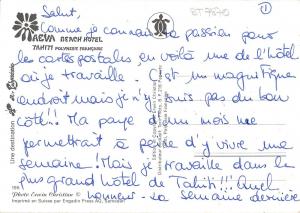 Salut,
Comme je connais ta passion pour
les cartes postales en voilà une de l'hôtel
où je travaille. C'est un magnifique
endroit mais je n'y suis pas du bon
côté!! Ma paye d'un mois me
permettrait à peine d'y vivre une
semaine! Mais je travaille dans le
plus grand hôtel de Tahiti!!! Quel
honneur - La semaine dernière
MAEVA BEACH HOTEL
TAHITI POLYNESIE FRANÇAISE
BT-7870
1
Une destination
Photo Erwin Christian
Imprimé en Suisse par Engadin Press AG, Samedan